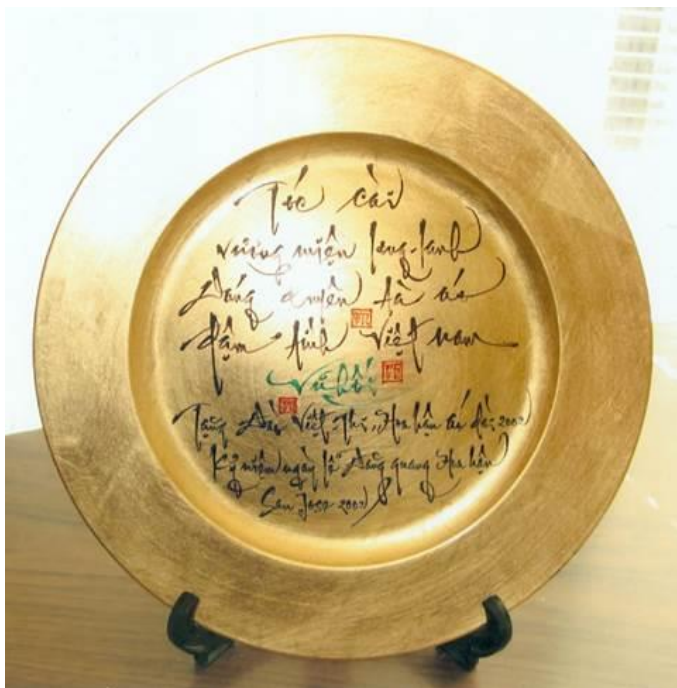 Tóc cài
vương miện long-lanh
Dáng duyên tà áo
đậm tình Việt nam
Vũ Hối
Tặng Việt-Thi, Hoa hậu áo dài 2007
Kỷ niệm ngày lễ Đăng quang Hoa hậu
San Jose 2007